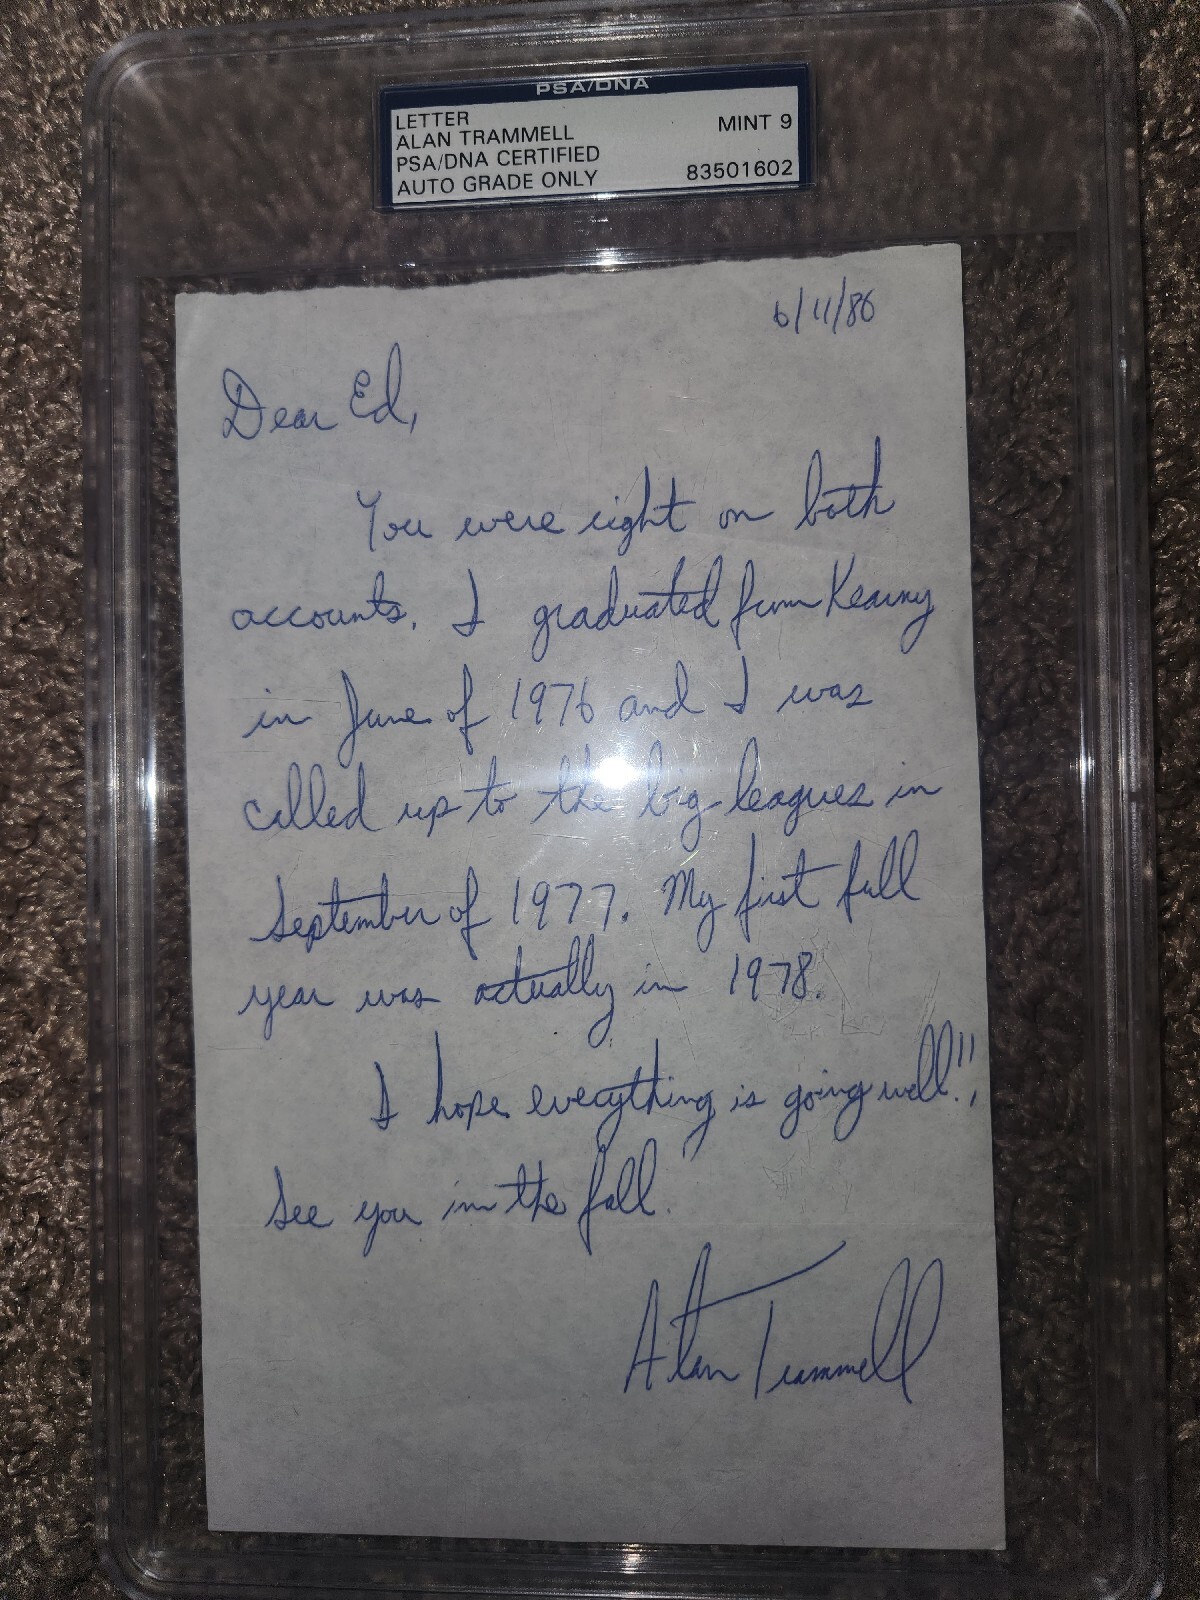 PSA/DNA
LETTER
ALAN TRAMMELL
PSA/DNA CERTIFIED
AUTO GRADE ONLY
MINT 9
83501602
6/11/86
Dear Ed,
You were right on both
accounts. I graduated from Kearny
in June of 1976 and I was
called up to the big leagues in
September of 1977. My first full
year was actually in 1978.
I hope everything is going well!!,
See you in the fall.
Alan Trammell